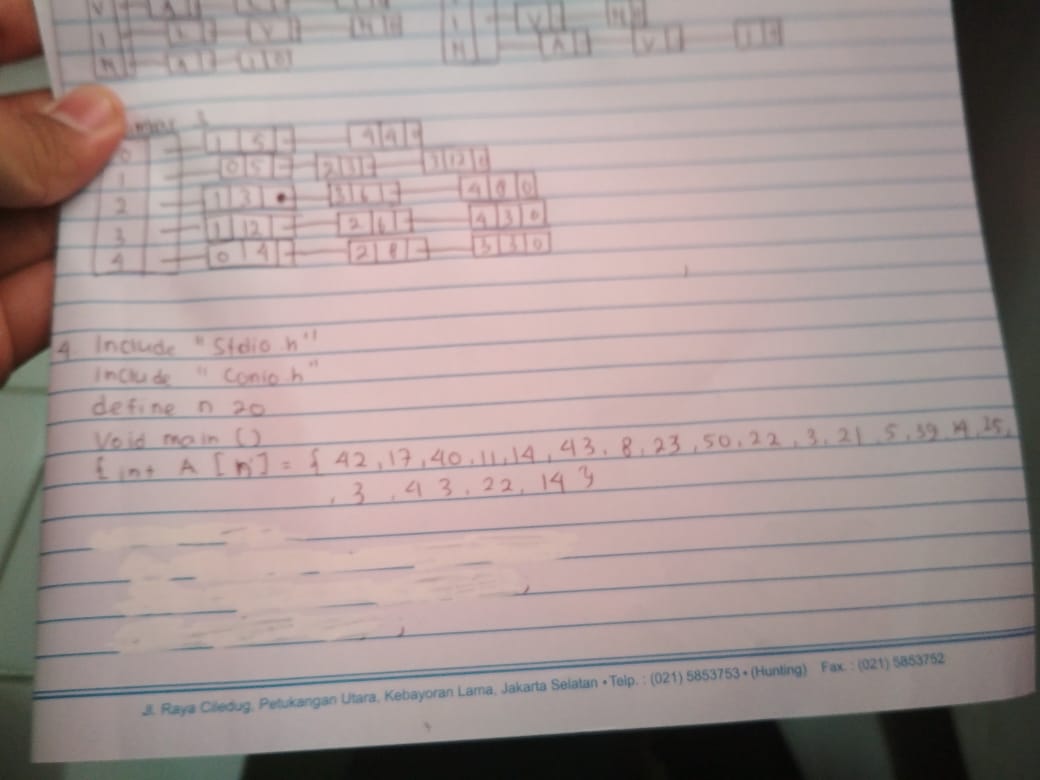 V A
1 V N 0
N A 1 0
1 V N
N A V 1
0 1 5 4 4
1 0 5 2 3 3 12 0
2 1 3 3 6 4 8 0
3 1 12 2 6 4 3 0
4 0 4 2 8 3 3 0
4 Include "Stdio.h"
Include "Conio.h"
define n 20
Void main ()
{ int A [n] = { 42, 17, 40, 11, 14, 43, 8, 23, 50, 22, 3, 21, 5, 39, 14, 25,
, 3, 43, 22, 14 }
Jl. Raya Ciledug, Petukangan Utara, Kebayoran Lama, Jakarta Selatan • Telp. : (021) 5853753 • (Hunting) Fax. : (021) 5853752